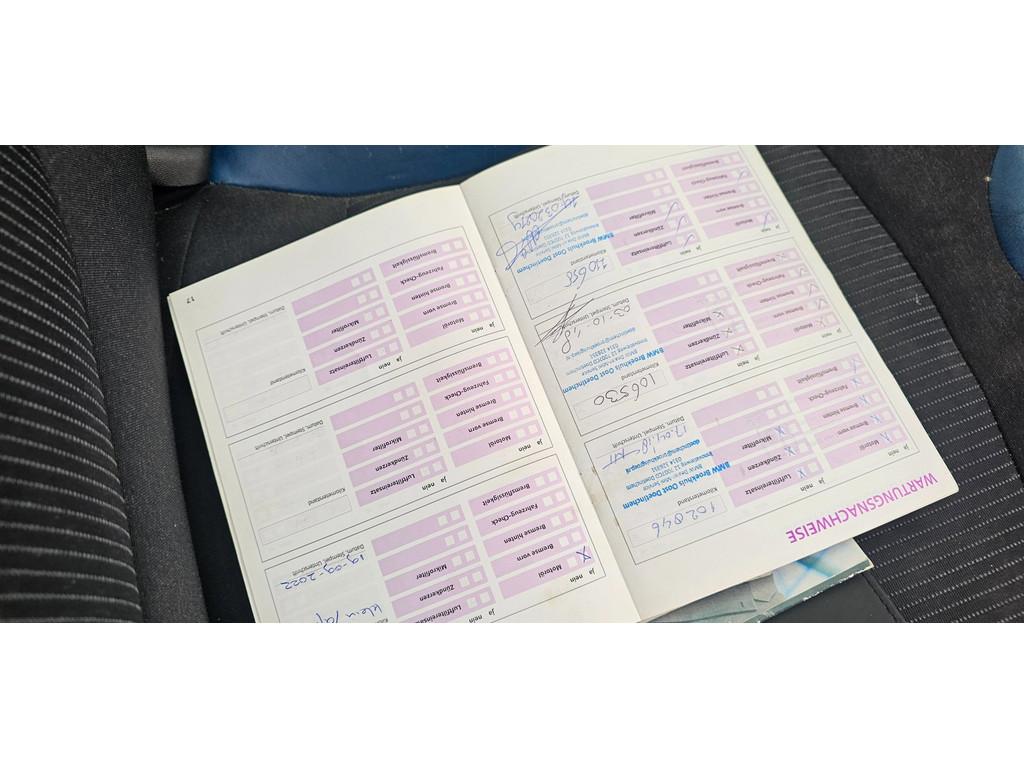 WARTUNGSNACHWEISE
ja nein
Motoröl
Bremse vorn
Bremse hinten
Fahrzeug-Check
Bremsflüssigkeit
Luftfiltereinsatz
Zündkerzen
Mikrofilter
Kilometerstand
102846
BMW Broekhuis Oost Doetinchem
BMW en Mini Service
0314 328351
Datum, Stempel, Unterschrift
17.04.18
ja nein
Motoröl
Bremse vorn
Bremse hinten
Fahrzeug-Check
Bremsflüssigkeit
Luftfiltereinsatz
Zündkerzen
Mikrofilter
Kilometerstand
106530
BMW Broekhuis Oost Doetinchem
BMW en Mini Service
0314 328351
Datum, Stempel, Unterschrift
03-10-18
ja nein
Motoröl
Bremse vorn
Bremse hinten
Fahrzeug-Check
Bremsflüssigkeit
Luftfiltereinsatz
Zündkerzen
Mikrofilter
Kilometerstand
110658
BMW Broekhuis Oost Doetinchem
Datum, Stempel, Unterschrift
ja nein
Motoröl
Bremse vorn
Bremse hinten
Fahrzeug-Check
Bremsflüssigkeit
Luftfiltereinsatz
Zündkerzen
Mikrofilter
Datum, Stempel, Unterschrift
19-09-2022
ja nein
Motoröl
Bremse vorn
Bremse hinten
Fahrzeug-Check
Bremsflüssigkeit
Luftfiltereinsatz
Zündkerzen
Mikrofilter
Kilometerstand
Datum, Stempel, Unterschrift
ja nein
Motoröl
Bremse vorn
Bremse hinten
Fahrzeug-Check
Bremsflüssigkeit
Luftfiltereinsatz
Zündkerzen
Mikrofilter
Kilometerstand
Datum, Stempel, Unterschrift
17